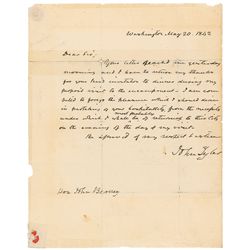 Washington May 20. 1842
Dear Sir,
Your letter reached me yesterday
morning and I have to return my thanks
for your kind invitation to dinner during my
proposed visit to the encampment - I am com-
pelled to forego the pleasure which I should derive
in partaking of your hospitality from the
most probably
under which I shall be of returning to this City
on the evening of the day of my visit.
Be assured of my respect
John Tyler
Hon. John